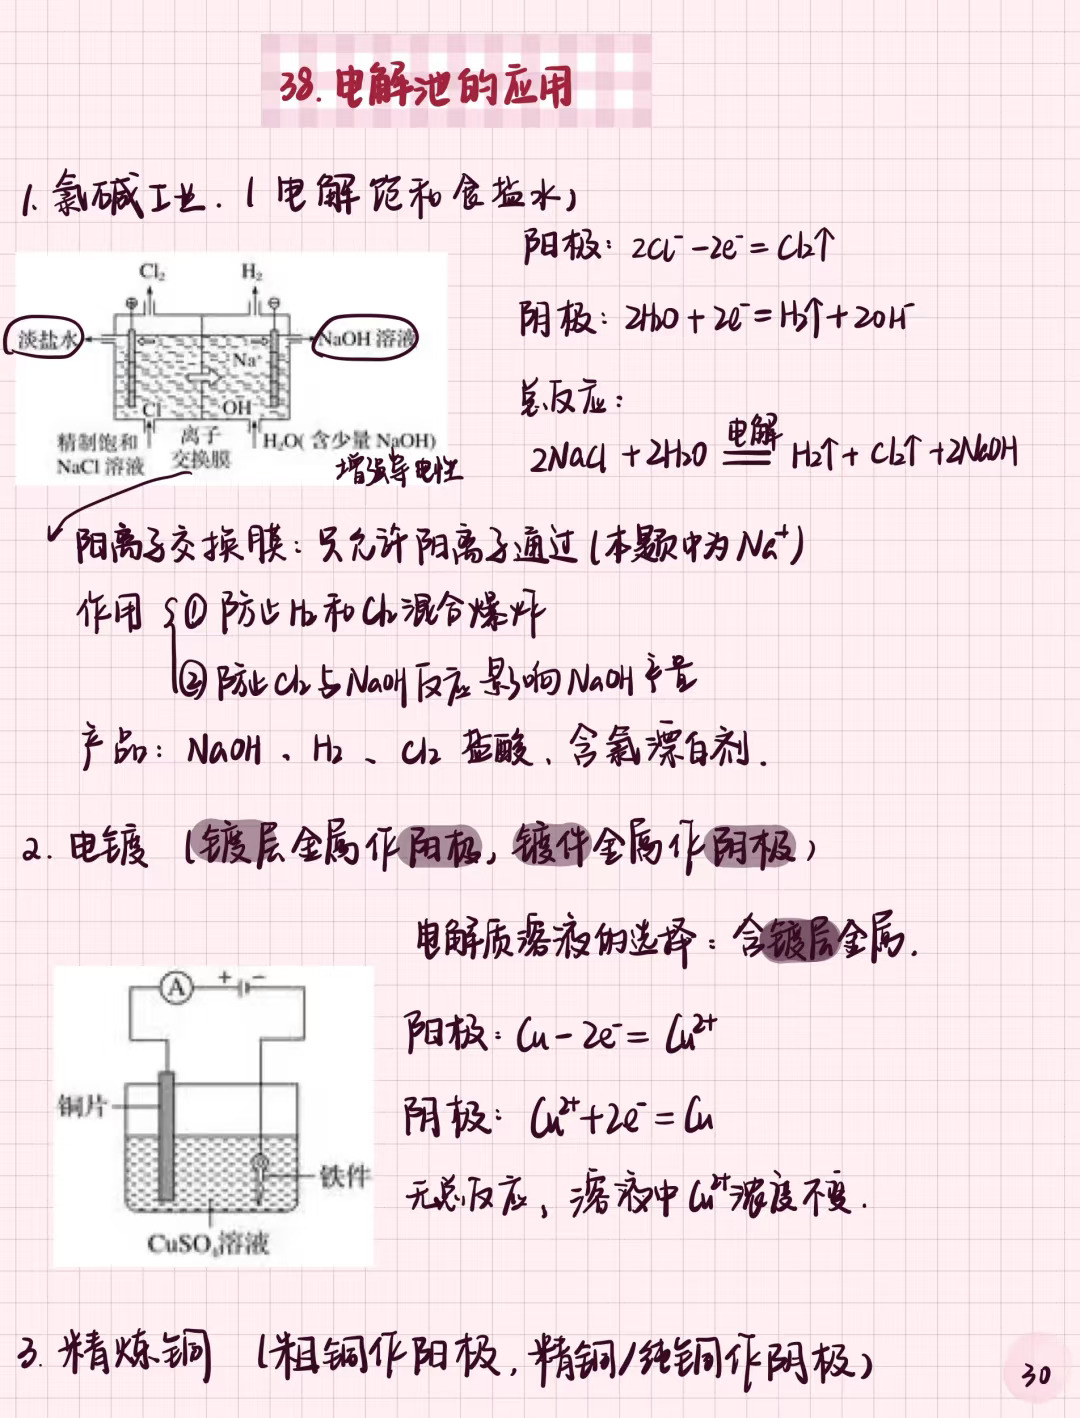 38. 电解池的应用
1. 氯碱工业. (电解饱和食盐水)
阳极: 2Cl⁻ -2e⁻ = Cl₂↑
阴极: 2H₂O + 2e⁻ = H₂↑ + 2OH⁻
总反应:
2NaCl + 2H₂O 电解 H₂↑ + Cl₂↑ + 2NaOH
Cl₂ H₂
⊕ ⊖
淡盐水 NaOH 溶液
Na⁺
Cl⁻ OH⁻
精制饱和 离子 H₂O(含少量 NaOH)
NaCl 溶液 交换膜 增强导电性
阳离子交换膜: 只允许阳离子通过(本题中为Na⁺)
作用 { ① 防止H₂和Cl₂混合爆炸
② 防止Cl₂与NaOH反应影响NaOH产量
产品: NaOH、H₂、Cl₂ 盐酸、含氯漂白剂.
2. 电镀 (镀层金属作阳极, 镀件金属作阴极)
电解质溶液的选择: 含镀层金属.
A + -
铜片
铁件
CuSO₄溶液
阳极: Cu - 2e⁻ = Cu²⁺
阴极: Cu²⁺ + 2e⁻ = Cu
无总反应, 溶液中Cu²⁺浓度不变.
3. 精炼铜 (粗铜作阳极, 精铜/纯铜作阴极)
30